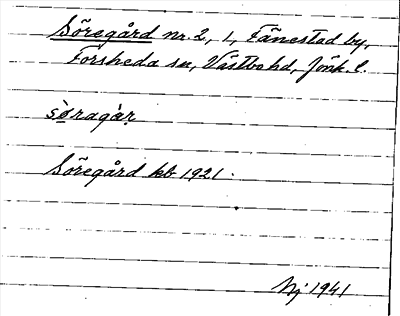 Söregård nr. 2, 1, Fänestad by,
Forsheda sn, Västbo hd, Jönk. l.
sø̀ragàr
Söregård kb 1921.
Nj 1941